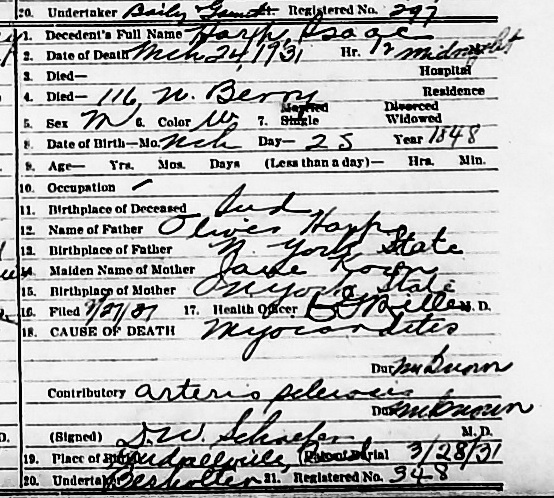 20. Undertaker Baily Registered No. 297
1. Decedent's Full Name Harp Isaac
2. Date of Death Mch 24, 1931 Hr. 12 midnight
3. Died— Hospital
4. Died— 116 N. Berry Residence
5. Sex M 6. Color W 7. Married Single Divorced Widowed
8. Date of Birth—Mo. Mch Day— 25 Year 1848
9. Age— Yrs. Mos. Days (Less than a day)— Hrs. Min.
10. Occupation
11. Birthplace of Deceased Ind
12. Name of Father Oliver Harp
13. Birthplace of Father N. York State
14. Maiden Name of Mother Jane
15. Birthplace of Mother N York State
16. Filed 3/27/31 17. Health Officer Miller M. D.
18. CAUSE OF DEATH Myocardites
Dur unknown
Contributory arterio sclerosis
Dur unknown
(Signed) D. W. Schaefer M. D.
19. Place of Burial Date of Burial 3/28/31
20. Undertaker 21. Registered No. 348